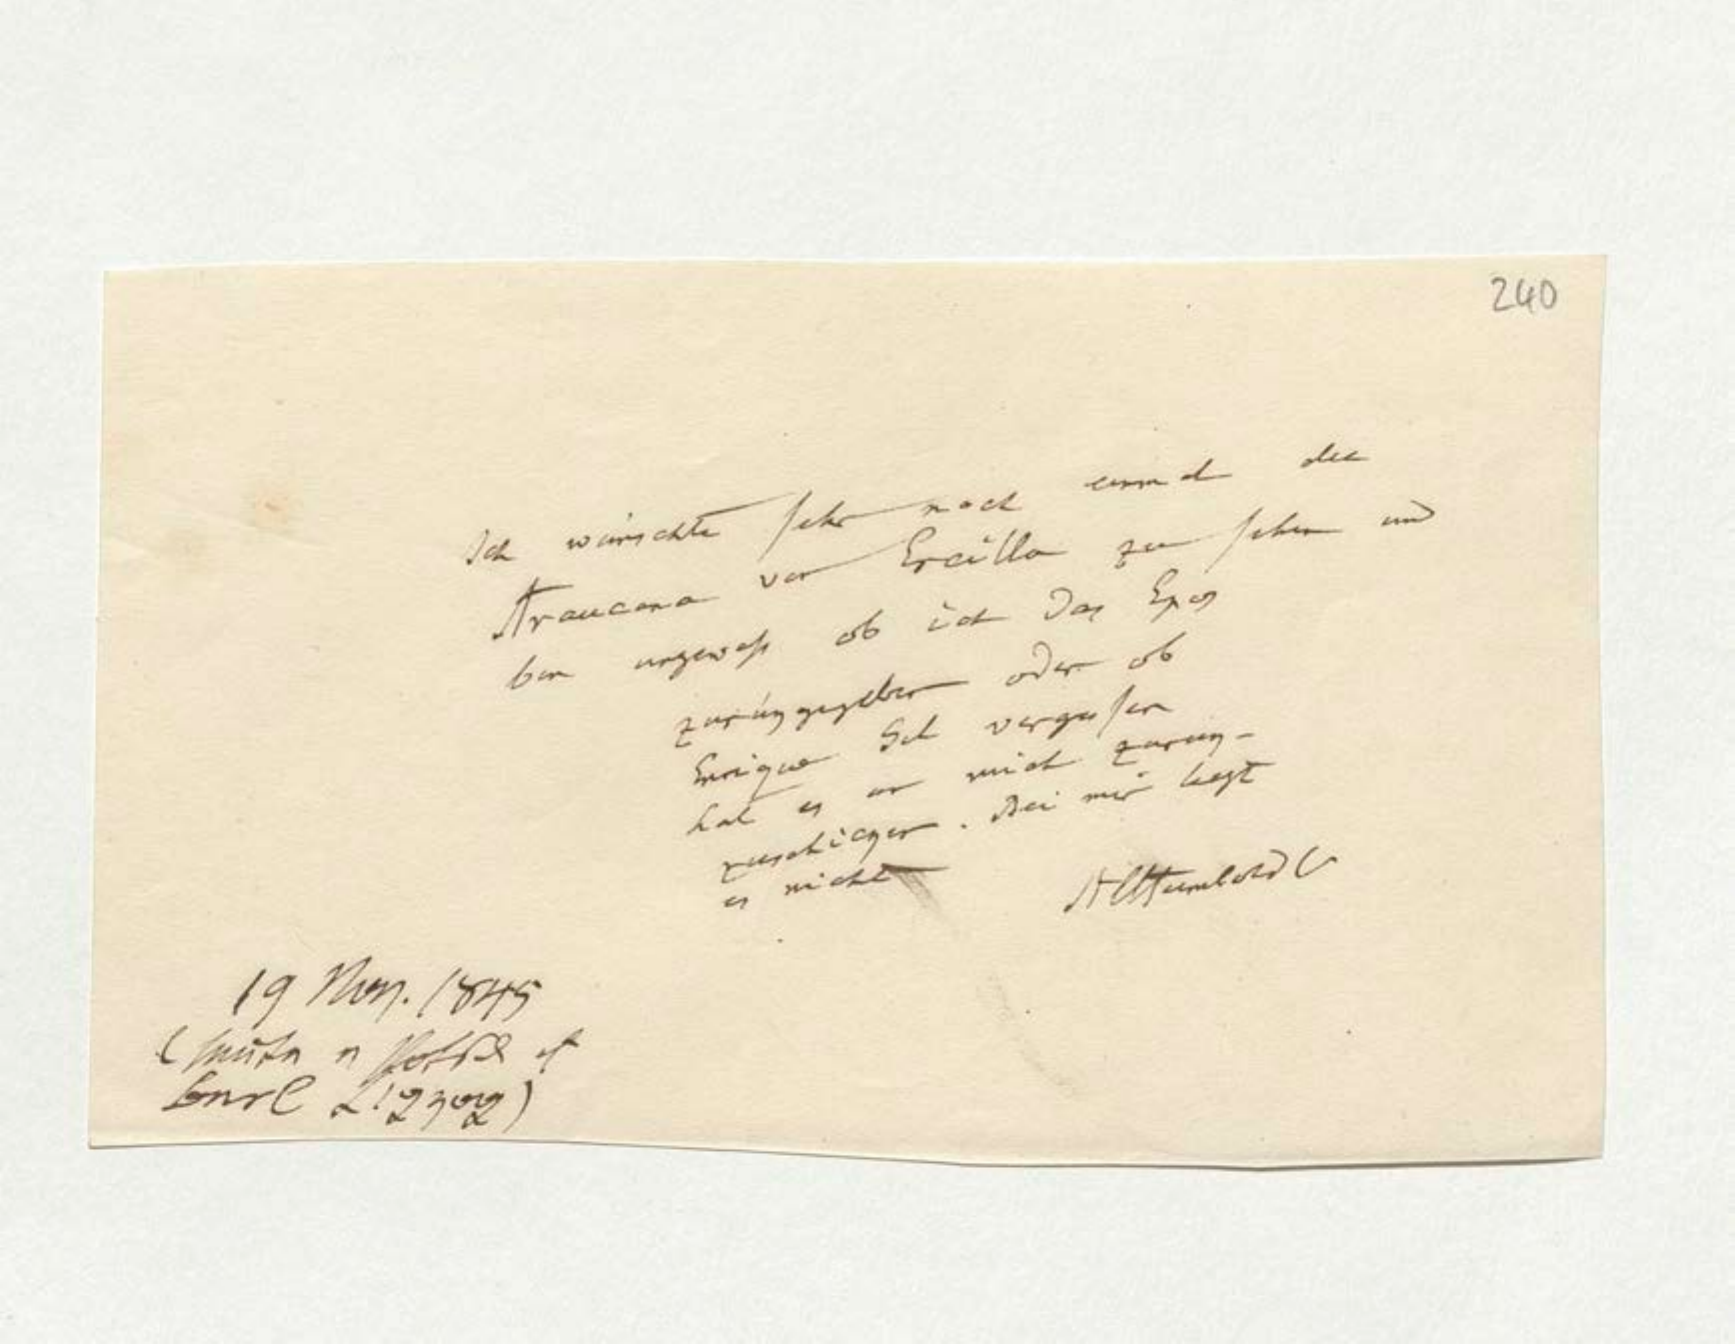 240
Ich wünschte sehr noch einmal die
Araucana von Ercilla zu sehen und
bin ungewiß ob ich das Epos
zurükgegeben oder ob
Enrique Sch vergessen
hat es an mich zurük-
zuschicken. Bei mir liegt
es nicht
AlHumboldt
19 Nov. 1845